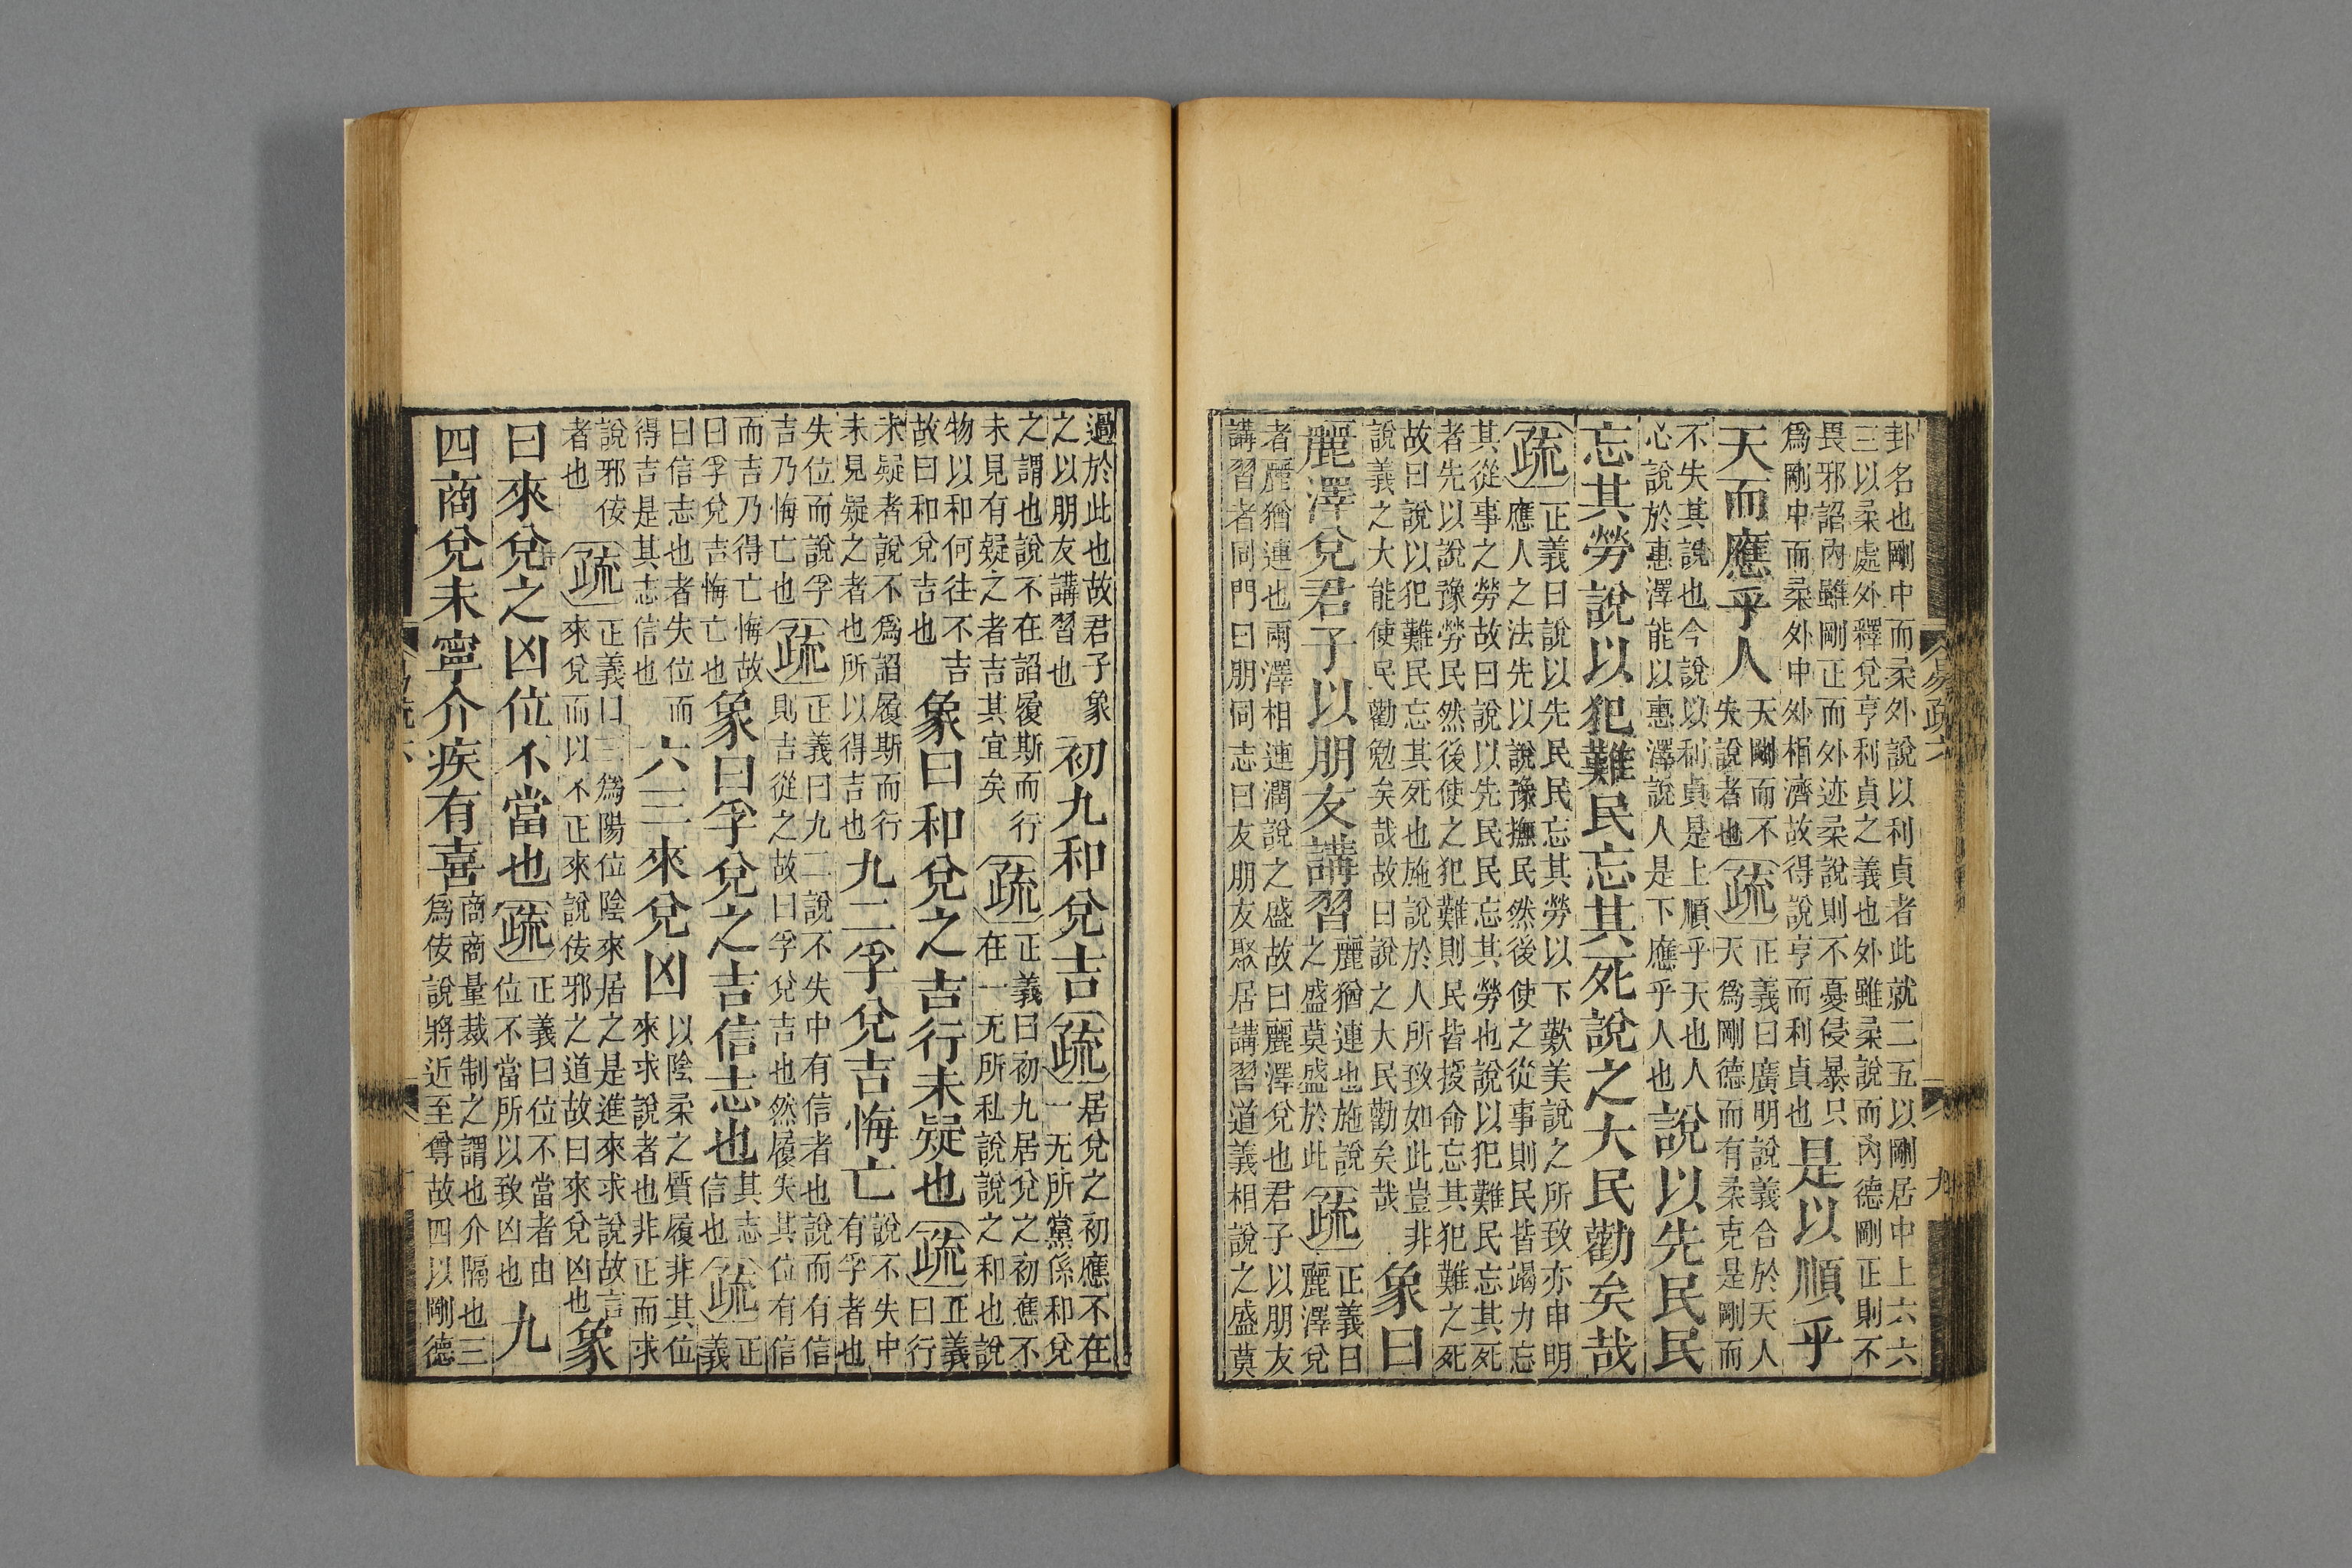 卦名也剛中而柔外說以利貞者此就二五以剛居中上六六
三以柔處外釋兌亨利貞之義也外雖柔說而內德剛正則不
畏邪諂內雖剛正而外迹柔說則不憂侵暴只
爲剛中而柔外中外相濟故得說亨而利貞也
是以順乎
天而應乎人
天剛而不
失說者也
疏
正義曰廣明說義合於天人
天爲剛德而有柔克是剛而
不失其說也今說以利貞是上順乎天也人
心說於惠澤能以惠澤說人是下應乎人也
說以先民民
忘其勞說以犯難民忘其死說之大民勸矣哉
疏
正義曰說以先民民忘其勞以下歎美說之所致亦申明
應人之法先以說豫撫民然後使之從事則民皆竭力忘
其從事之勞故曰說以先民民忘其勞也說以犯難民忘其死
者先以說豫勞民然後使之犯難則民皆授命忘其犯難之死
故曰說以犯難民忘其死也施說於人所致如此豈非
說義之大能使民勸勉矣哉故曰說之大民勸矣哉
象曰
麗澤兌君子以朋友講習
麗猶連也施說
之盛莫盛於此
疏
正義曰
麗澤兌
者麗猶連也兩澤相連潤說之盛故曰麗澤兌也君子以朋友
講習者同門曰朋同志曰友朋友聚居講習道義相說之盛莫
易疏六
九
過於此也故君子象
之以朋友講習也
初九和兌吉
疏
居兌之初應不在
一无所黨係和兌
之謂也說不在諂履斯而行
未見有疑之者吉其宜矣
疏
正義曰初九居兌之初應不
在一无所私說說之和也說
物以和何往不吉
故曰和兌吉也
象曰和兌之吉行未疑也
疏
正義
曰行
未疑者說不爲諂履斯而行
未見疑之者也所以得吉也
九二孚兌吉悔亡
說不失中
有孚者也
失位而說孚
吉乃悔亡也
疏
正義曰九二說不失中有信者也說而有信
則吉從之故曰孚兌吉也然履失其位有信
而吉乃得亡悔故
曰孚兌吉悔亡也
象曰孚兌之吉信志也
其志
信也
疏
正
義
曰信志也者失位而
得吉是其志信也
六三來兌凶
以陰柔之質履非其位
來求說者也非正而求
說邪佞
者也
疏
正義曰三爲陽位陰來居之是進來求說故言
來兌而以不正來說佞邪之道故曰來兌凶也
象
曰來兌之凶位不當也
疏
正義曰位不當者由
位不當所以致凶也
九
四商兌未寧介疾有喜
商商量裁制之謂也介隔也三
爲佞說將近至尊故四以剛德